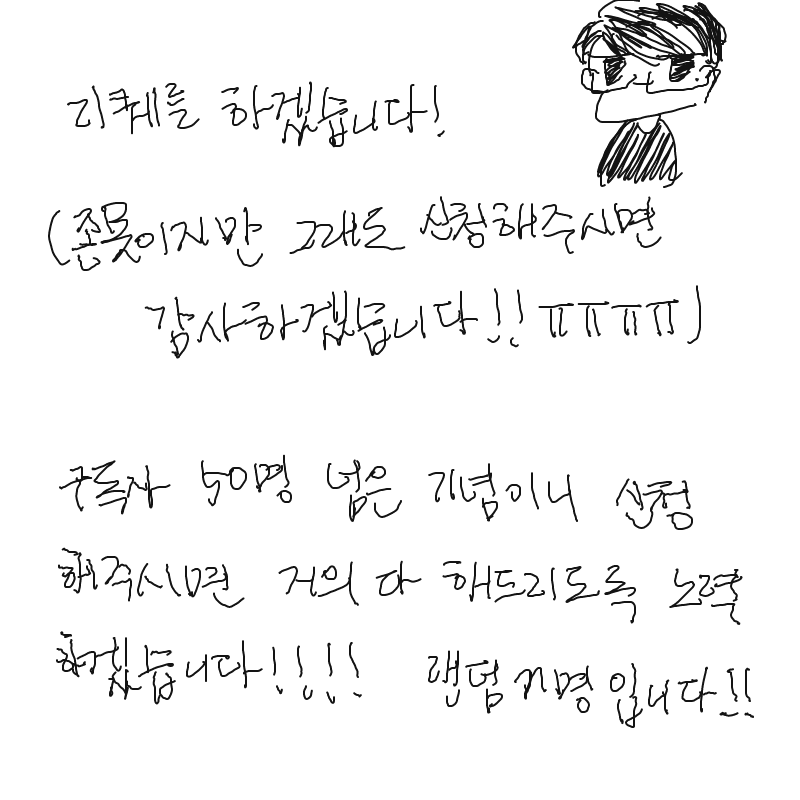 리퀘를 하겠습니다!
(존못이지만 그래도 신청해주시면
감사하겠습니다!! ㅠㅠㅠㅠ)
구독자 50명 넘은 기념이니 신청
해주시면 거의 다 해드리도록 노력
하겠습니다!!!! 랜덤 n명입니다!!